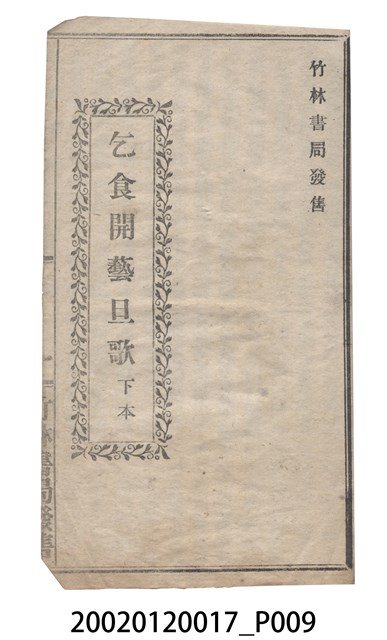 竹林書局發售
乞食開藝旦歌 下本
竹林書局發售
20020120017_P009